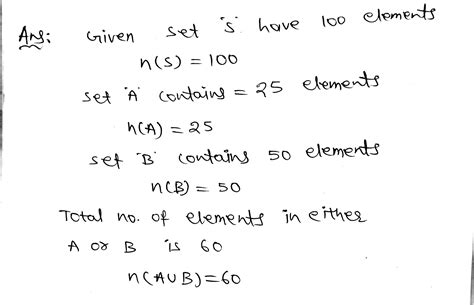 Ans: Given set 'S' have 100 elements
n(S) = 100
set 'A' contains = 25 elements
n(A) = 25
set 'B' contains 50 elements
n(B) = 50
Total no. of elements in either
A or B is 60
n(A∪B)=60